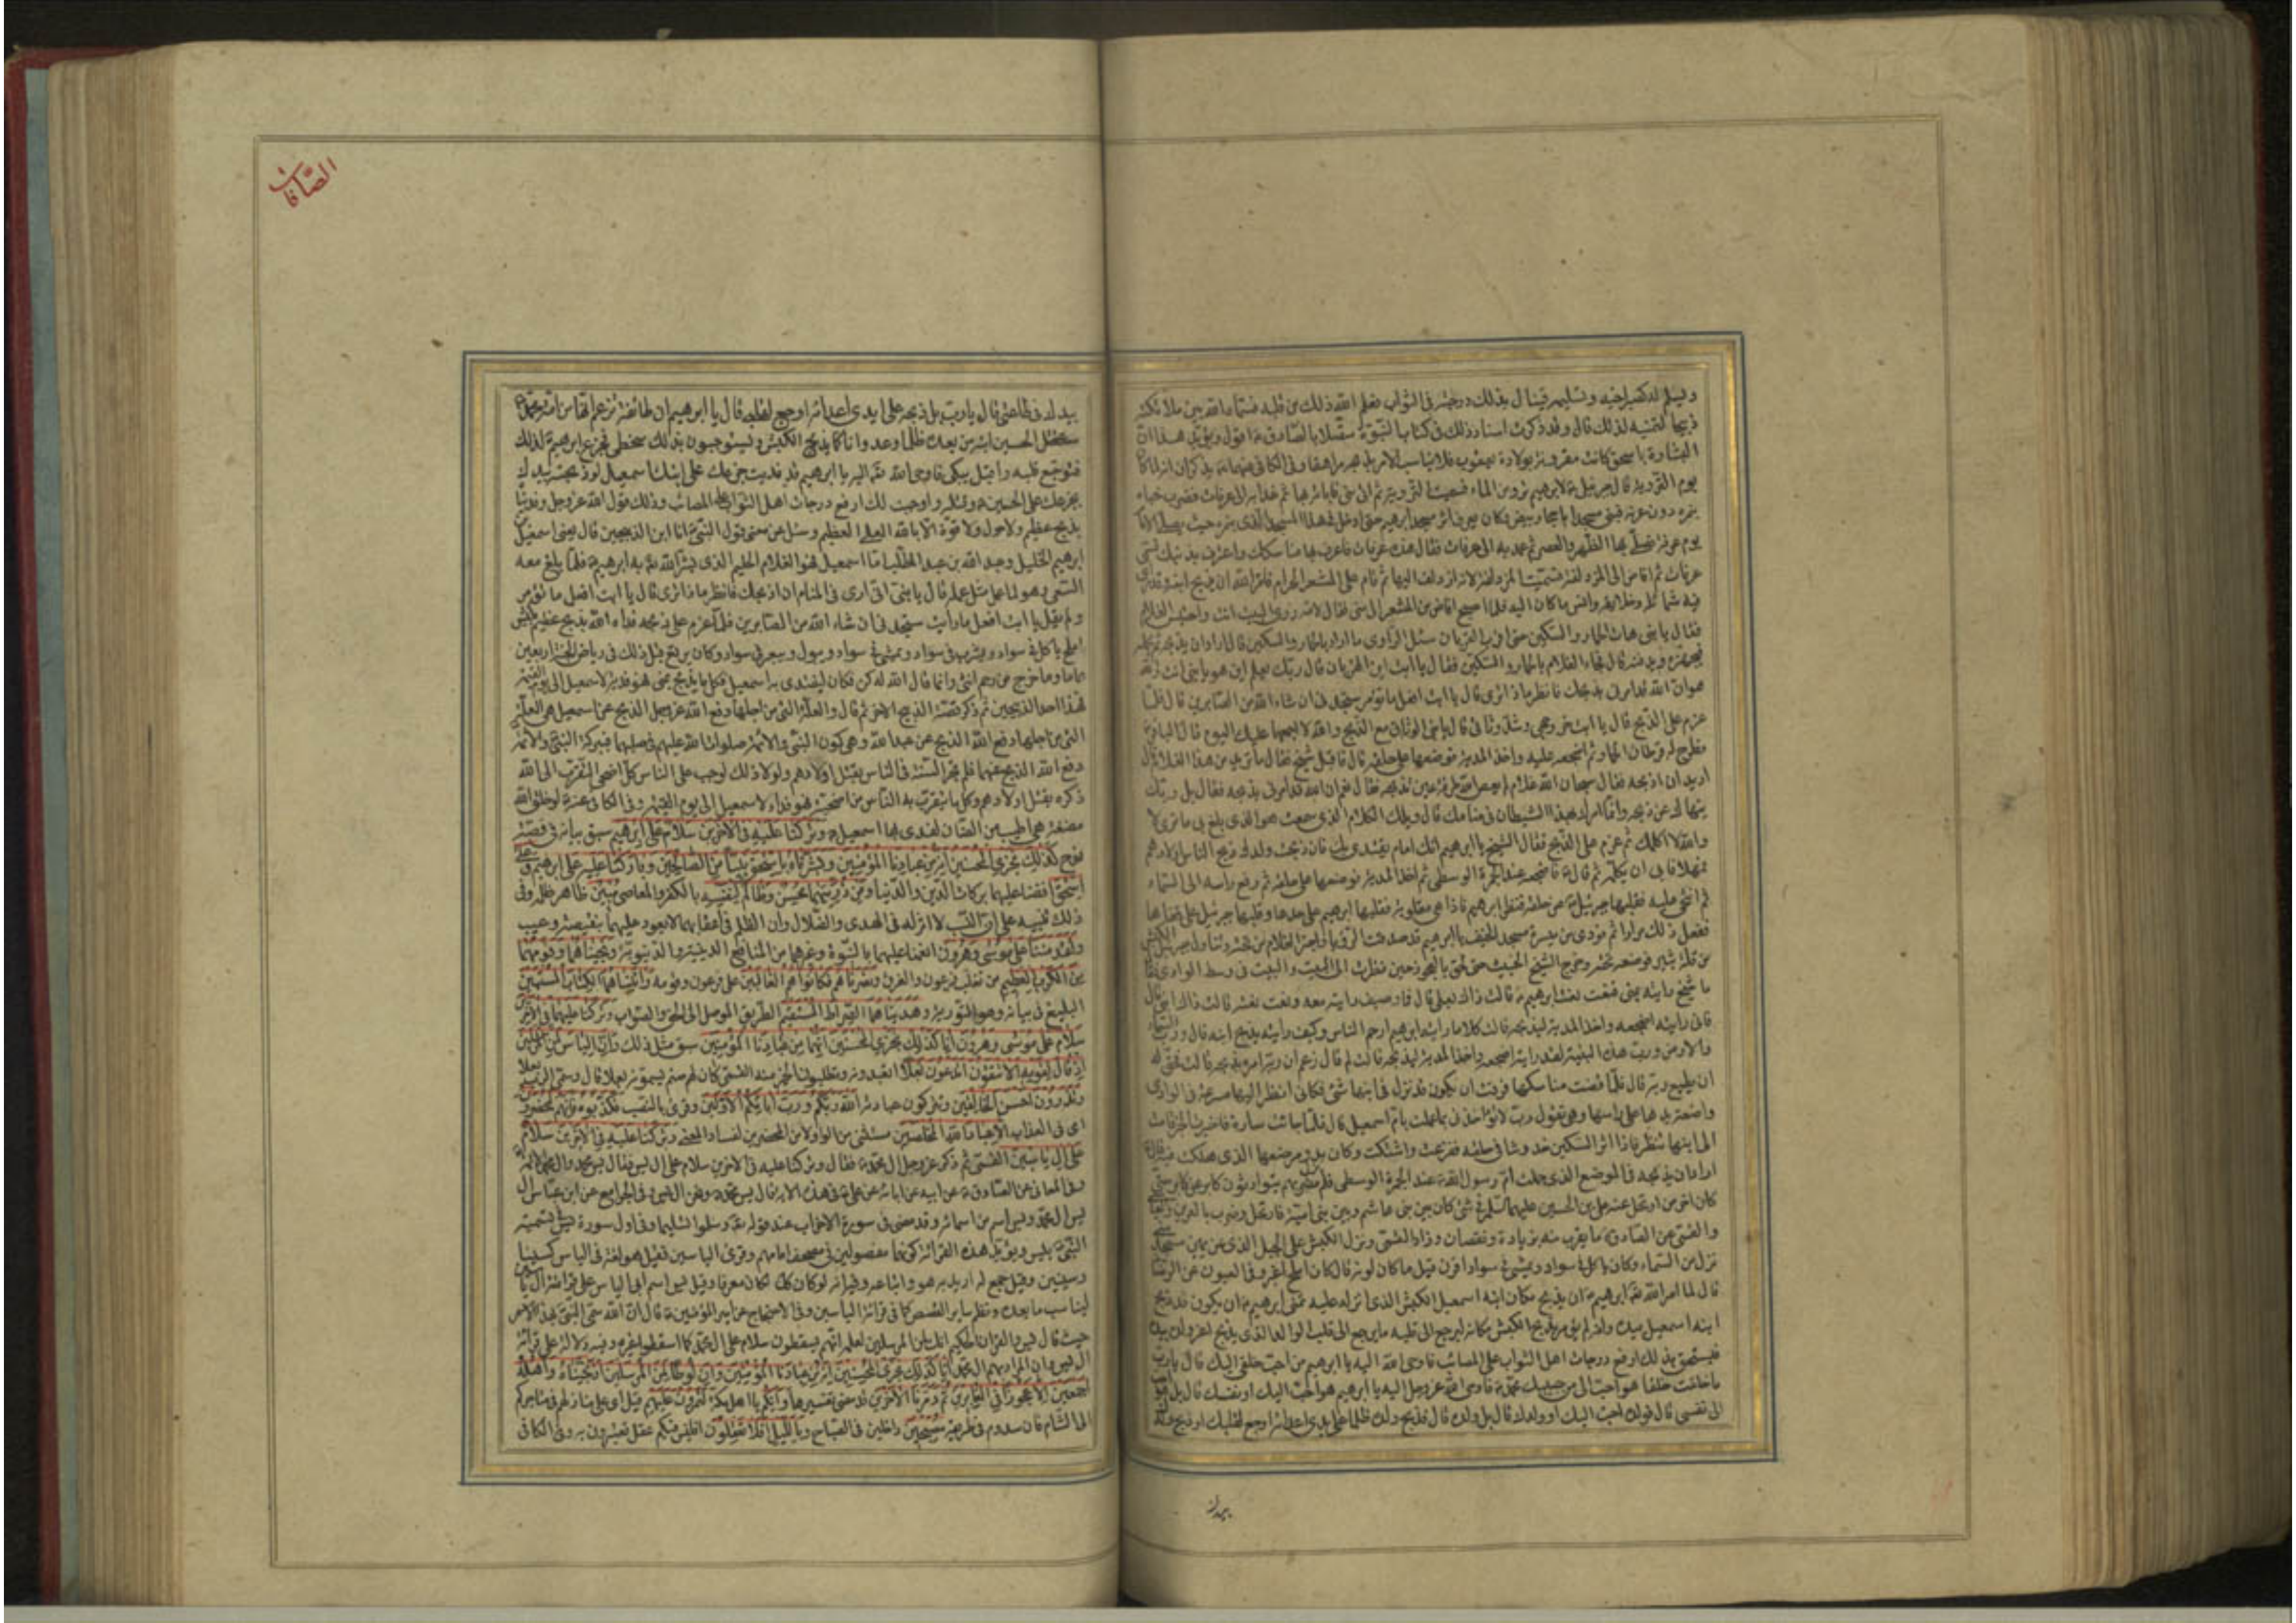 ذبيحا لتمنيه لذلك قال وقد ذكرت اسناد ذلك في كتاب النبوة متصلا بالصادق ع اقول ويؤيد هذا ان
البشارة باسحق كانت مقرونة بولادة يعقوب فلا يناسب الامر بذبحه مراهقا وفي الكافي عنهما ع يذكران انه لما كان
يوم التروية قال جبرئيل ع لابراهيم ع تروه من الماء فسميت التروية ثم اتى منى فاباته بها ثم غدا به الى عرفات فضرب خباه
بنمرة دون عرنة فبنى مسجدا باحجار بيض وكان يعرف اثر مسجد ابراهيم حتى ادخل في هذا المسجد الذي بنمرة حيث يصلي الامام
يوم عرفة فصلى بها الظهر والعصر ثم عمد به الى عرفات فقال هذه عرفات فاعرف بها مناسكك واعترف بذنبك فسمي
عرفات ثم افاض الى المزدلفة فسميت المزدلفة لانه ازدلف اليها ثم قام على المشعر الحرام فامره الله ان يذبح ابنه وقد راى
فيه شمائله وخلائقه وانس ما كان اليه فلما اصبح افاض من المشعر الى منى فقال لامه زوري البيت انت واحتبس الغلام
فقال يا بني هات الحمار والسكين حتى اقرب القربان سئل الراوي ما اراد بالحمار والسكين قال اراد ان يذبحه ثم يحمله
فيجهزه ويدفنه قال فجاء الغلام بالحمار والسكين فقال يا ابت اين القربان قال ربك يعلم اين هو يا بني انت والله
هو ان الله قد امرني بذبحك فانظر ماذا ترى قال يا ابت افعل ما تؤمر ستجدني ان شاء الله من الصابرين قال فلما
عزم على الذبح قال يا ابت خمر وجهي وشد وثاقي قال يا بني الوثاق مع الذبح والله لا اجمعهما عليك اليوم قال الباقر ع
فطرح له قرطان الحمار ثم اضجعه عليه واخذ المدية فوضعها على حلقه قال فاقبل شيخ فقال ما تريد من هذا الغلام قال
اريد ان اذبحه فقال سبحان الله غلام لم يعص الله طرفة عين تذبحه فقال نعم ان الله قد امرني بذبحه فقال بل ربك
ينهاك عن ذبحه وانما امرك بهذا الشيطان في منامك قال ويلك الكلام الذي سمعت هو الذي بلغ بي ما ترى لا
والله لا اكلمك ثم عزم على الذبح فقال الشيخ يا ابراهيم انك امام يقتدى بك فان ذبحت ولدك ذبح الناس اولادهم
فمهلا فابى ان يكلمه ثم قال ع فاضجعه عند الجمرة الوسطى ثم اخذ المدية فوضعها على حلقه ثم رفع راسه الى السماء
ثم انتحى عليه فقلبها جبرئيل ع عن حلقه فنظر ابراهيم فاذا هي مقلوبة فقلبها ابراهيم على حدها وقلبها جبرئيل على قفاها
ففعل ذلك مرارا ثم نودي من ميسرة مسجد الخيف يا ابراهيم قد صدقت الرؤيا واجتر الغلام من تحته وتناول جبرئيل الكبش
من قلة ثبير فوضعه تحته وخرج الشيخ الخبيث حتى لحق بالعجوز حين نظرت الى البيت والبيت في وسط الوادي فقال
ما شيخ رايته بمنى فنعت نعت ابراهيم ع قالت ذاك بعلي قال فما وصيف رايته معه ونعت نعته قالت ذاك ابني قال
فاني رايته اضجعه واخذ المدية ليذبحه قالت كلا ما رايت ابراهيم ارحم الناس وكيف رايته يذبح ابنه قال ورب السماء
والارض ورب هذه البنية لقد رايته اضجعه واخذ المدية ليذبحه قالت لم قال زعم ان ربه امره بذبحه قالت فحق له
ان يطيع ربه قال فلما قضت مناسكها فرقت ان يكون قد نزل في ابنها شئ فكاني انظر اليها مسرعة في الوادي
واضعة يدها على راسها وهي تقول رب لا تؤاخذني بما عملت بام اسمعيل قال فلما جائت سارة فاخبرت الخبر قامت
الى ابنها تنظر فاذا اثر السكين خدوشا في حلقه ففزعت واشتكت وكان بدو مرضها الذي هلكت فيه قال
اراد ان يذبحه في الموضع الذي حملت ام رسول الله ص عند الجمرة الوسطى فلم يزل مضربهم يتوارثون كابر عن كابر حتى
كان اخر من ارتحل عنه علي بن الحسين عليهما السلم في شئ كان بين بني هاشم وبين بني امية فارتحل وضرب بالعرين
والقمي عن الصادق ع ما يقرب منه بزيادة ونقصان وزاد القمي ونزل الكبش على الجبل الذي عن يمين مسجد منى
نزل من السماء وكان ياكل في سواد ويمشي في سواد اقرن قيل ما كان لونه قال كان املح اغبر وفي العيون عن الرضا
قال لما امر الله تعالى ابراهيم ع ان يذبح مكان ابنه اسمعيل الكبش الذي انزله عليه تمنى ابراهيم ع ان يكون قد ذبح
ابنه اسمعيل بيده وانه لم يؤمر بذبح الكبش مكانه ليرجع الى قلبه ما يرجع الى قلب الوالد الذي يذبح اعز ولده بيده
فيستحق بذلك ارفع درجات اهل الثواب على المصائب فاوحى الله اليه يا ابراهيم من احب خلقي اليك قال يا رب
ما خلقت خلقا هو احب الي من حبيبك محمد ص فاوحى الله عز وجل اليه يا ابراهيم هو احب اليك او نفسك قال بل هو احب
الي نفسي قال فولده احب اليك او ولدك قال بل ولده قال فذبح ولده ظلما على يدي اعدائه اوجع لقلبك او ذبح ولدك
بيدك
الصافات
بيدك في طاعتي قال يا رب بل ذبحه على ايدي اعدائه اوجع لقلبي قال يا ابراهيم ان طائفة تزعم انها من امة محمد ص
ستقتل الحسين ابنه من بعده ظلما وعدوانا كما يذبح الكبش ويستوجبون بذلك سخطي فجزع ابراهيم ع لذلك
فتوجع قلبه واقبل يبكي فاوحى الله تعالى اليه يا ابراهيم قد فديت جزعك على ابنك اسمعيل لو ذبحته بيدك
بجزعك على الحسين ع وقتله واوجبت لك ارفع درجات اهل الثواب على المصائب وذلك قول الله عز وجل وفديناه
بذبح عظيم ولا حول ولا قوة الا بالله العلي العظيم وسئل عن معنى قول النبي ص انا ابن الذبيحين قال يعني اسمعيل بن
ابراهيم الخليل وعبد الله بن عبد المطلب اما اسمعيل فهو الغلام الحليم الذي بشر الله به ابراهيم ع فلما بلغ معه
السعي وهو لما عمل مثل عمله قال يا بني اني ارى في المنام اني اذبحك فانظر ماذا ترى قال يا ابت افعل ما تؤمر
ولم يقل يا ابت افعل ما رايت ستجدني ان شاء الله من الصابرين فلما عزم على ذبحه فداه الله بذبح عظيم بكبش
املح ياكل في سواد ويشرب في سواد ويمشي في سواد ويبول ويبعر في سواد وكان يرتع قبل ذلك في رياض الجنة اربعين
عاما وما خرج من رحم انثى وانما قال الله له كن فكان ليفتدى به اسمعيل فكل ما يذبح بمنى فهو فدية لاسمعيل الى يوم القيمة
فهذا احد الذبيحين ثم ذكر قصة الذبيح الاخر ثم قال والعلة التي من اجلها دفع الله عز وجل الذبح عن اسمعيل هي العلة
التي من اجلها دفع الله الذبح عن عبد الله وهي كون النبي والائمة صلوات الله عليهم في صلبهما فببركة النبي والائمة
دفع الله الذبح عنهما فلم تجر السنة في الناس بقتل اولادهم ولولا ذلك لوجب على الناس كل اضحى التقرب الى الله
ذكره بقتل اولادهم وكل ما يتقرب به الناس من اضحية فهو فداء لاسمعيل الى يوم القيمة وفي الكافي عنه ع لو خلق الله
مضغة هي اطيب من الضان لفدى بها اسمعيل ع وتركنا عليه في الاخرين سلام على ابرهيم سبق بيانه في قصة
نوح كذلك نجزي المحسنين انه من عبادنا المؤمنين وبشرناه باسحق نبيا من الصالحين وباركنا عليه على ابرهيم وعلى
اسحق افضنا عليهما بركات الدين والدنيا ومن ذريتهما محسن وظالم لنفسه بالكفر والمعاصي مبين ظاهر ظلمه وفي
ذلك تنبيه على ان النسب لا اثر له في الهدى والضلال وان الظلم في اعقابهما لا يعود عليهما بنقيصة وعيب
ولقد مننا على موسى وهرون انعمنا عليهما بالنبوة وغيرها من المنافع الدينية والدنيوية ونجيناهما وقومهما
من الكرب العظيم من تغلب فرعون والغرق ونصرناهم فكانوا هم الغالبين على فرعون وقومه واتيناهما الكتاب المستبين
البليغ في بيانه وهو التورية وهديناهما الصراط المستقيم الطريق الموصل الى الحق والصواب وتركنا عليهما في الاخرين
سلام على موسى وهرون انا كذلك نجزي المحسنين انهما من عبادنا المؤمنين سبق مثل ذلك وان الياس لمن المرسلين
اذ قال لقومه الا تتقون اتدعون بعلا اتعبدونه وتطلبون الخير منه القمي كان لهم صنم يسمونه بعلا
وتذرون احسن الخالقين وتتركون عبادته الله ربكم ورب ابائكم الاولين وقرئ بالنصب فكذبوه فانهم لمحضرون
اي في العذاب الا عباد الله المخلصين مستثنى من الواو لا من المحضرين لفساد المعنى وتركنا عليه في الاخرين سلام
على ال ياسين القمي ثم ذكر عز وجل ال محمد ع فقال وتركنا عليه في الاخرين سلام على ال يس فقال يس محمد وال محمد الائمة
وفي المعاني عن الصادق ع عن ابيه عن ابائه عن علي ع في هذه الاية قال يس محمد ص ونحن ال يس وفي الجوامع عن ابن عباس ال
يس ال محمد ويس اسم من اسمائه وقد مضى في سورة الاحزاب عند قوله تعالى وسلموا تسليما وفي اول سورة يس تسمية
النبي ص بيس ويؤيد هذه القرائة كونهما مفصولين في مصحف امامهم وقرئ الياسين فقيل هو لغة في الياس كسينا
وسينين وقيل جمع له اريد به هو واتباعه وفيه انه لو كان كذلك لكان معرفا وقيل يس اسم ابي الياس على قرائة ال ياسين
ليناسب ما بعده ونظم ساير القصص كما في قرائة الياسين وفي الاحتجاج عن امير المؤمنين ع قال ان الله سمى النبي بهذا الاسم
حيث قال يس والقران الحكيم انك لمن المرسلين لعلمه انهم يسقطون سلام على ال محمد كما اسقطوا غيره وفيه دلالة على قرائة
ال يس وان المراد بهم ال محمد انا كذلك نجزي المحسنين انه من عبادنا المؤمنين وان لوطا لمن المرسلين اذ نجيناه واهله
اجمعين الا عجوزا في الغابرين ثم دمرنا الاخرين قد مضى تفسيرها وانكم يا اهل مكة لتمرون عليهم قيل اي على منازلهم في متاجركم
الى الشام فان سدوم في طريقه مصبحين داخلين في الصباح وبالليل افلا تعقلون افليس فيكم عقل تعتبرون به وفي الكافي